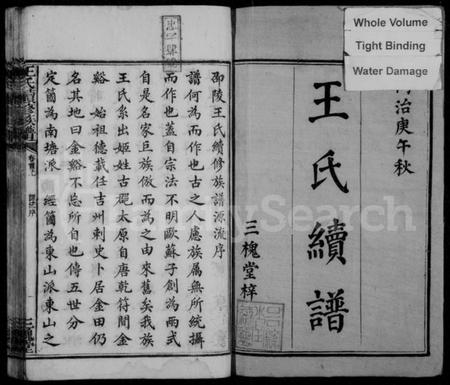 Whole Volume
Tight Binding
Water Damage
治庚午秋
王氏續譜
三槐堂梓
邵陵王氏續修族譜源流序
譜何為而作也古之人慮族屬無所統攝
而作也蓋自宗法不明歐蘇子創為兩式
自是名家巨族倣而為之由來舊矣我族
王氏系出姬姓古琅太原自唐乾符間金
谿 始祖德載任吉州刺史卜居金田仍
名其地曰金谿不忘所自也傳五世分
定箇為南塘派 經箇為東山派東山之